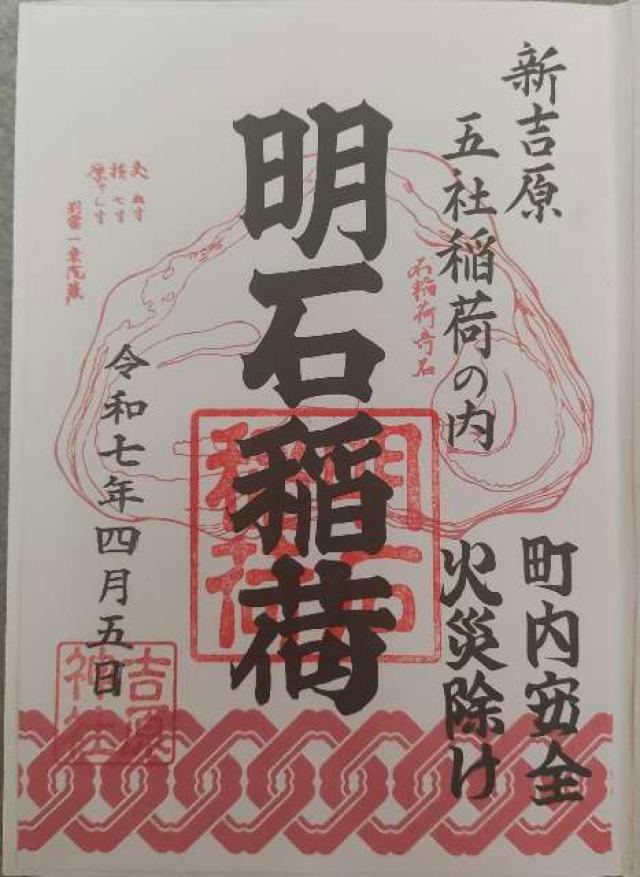 新吉原
五社稲荷の内
町内安全
火災除け
石稲荷奇石
明石稲荷
明石
稲荷
令和七年四月五日
吉原
神社